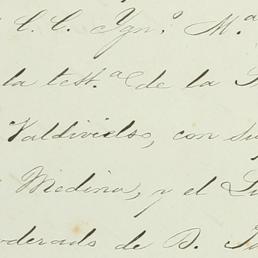 C. C. Ygn.º M.ª
la test.ª de la
Valdivielso, con su
Medina, y el
poderado de D.